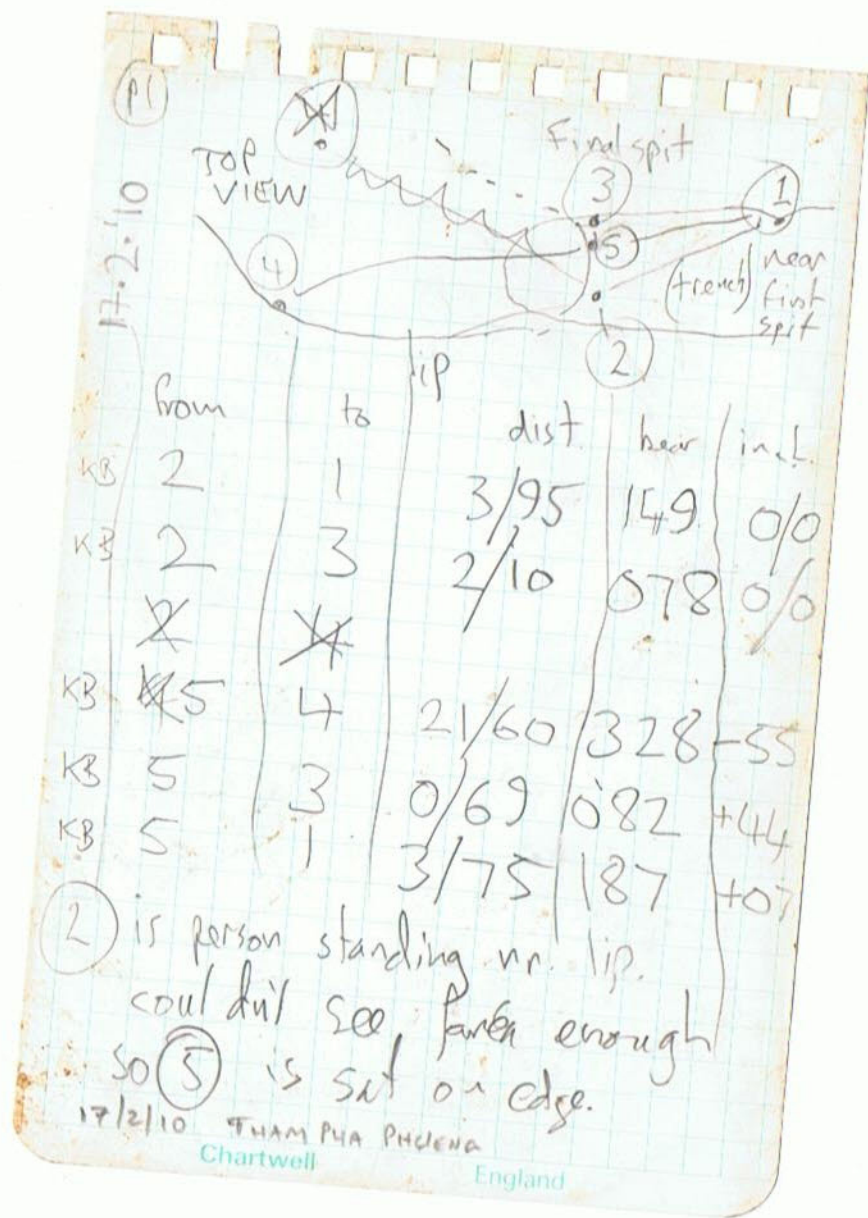 P1
17.2.'10
TOP VIEW
4
Final spit
3
1
5
4
(trench)
near
first
spit
2
lip
from to dist. bear incl.
KB 2 1 3/95 149 0/0
KB 2 3 2/10 078 0/0
2 4
KB 5 4 21/60 328 -55
KB 5 3 0/69 082 +44
KB 5 1 3/75 187 +07
2 is person standing nr. lip.
couldn't see enough
so 5 is sat on edge.
17/2/10 THAM PHA
Chartwell England